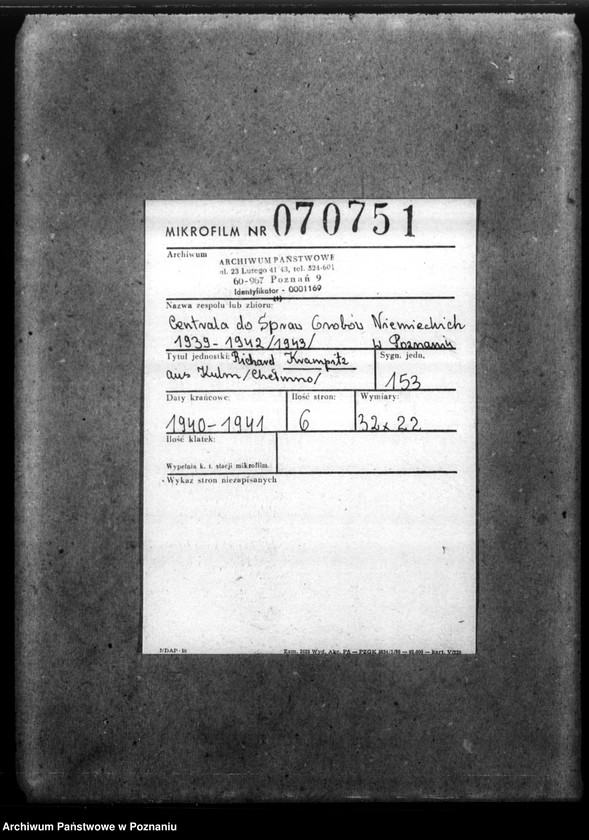 MIKROFILM NR 070751
Archiwum
ARCHIWUM PAŃSTWOWE
ul. 23 Lutego 41/43, tel. 524-601
60-967 Poznań 9
Identyfikator - 0001169
Nazwa zespołu lub zbioru:
Centrala do Spraw Grobów Niemieckich
1939-1942/1943/ w Poznaniu
Tytuł jednostki: Richard Krampitz
aus Kulm /Chełmno/
Sygn. jedn.
153
Daty krańcowe:
1940-1941
Ilość stron:
6
Wymiary:
32x22
Ilość klatek:
Wypełnia k. t. stacji mikrofilm.
Wykaz stron niezapisanych
Archiwum Państwowe w Poznaniu